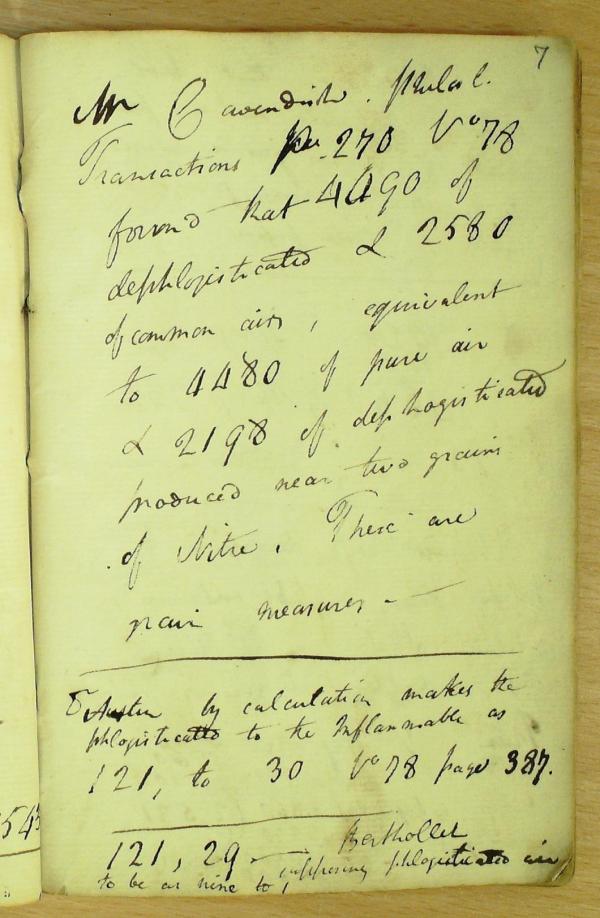 7
Mr Cavendish. Philos l.
Transactions 270 Vo 78
found that 4490 of
dephlogisticated & 2580
of common air, equivalent
to 4480 of pure air
& 2198 of dephlogisticated
produced near two grains
of Nitre. These are
grain measures. —
Dr Austin by calculation makes the
phlogisticatts to the Inflammable as
121, to 30 Vo 78 page 387.
121, 29 — Bertholles
supposing phlogisticated air
to be as nine to 1
543